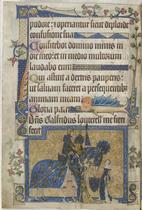 pudore: et operiantur sicut diploide
confusione sua
Confitebor domino nimis in
ore meo: et in medio multorum
laudabo eum
Qui astitit a dextris pauperis:
ut salvam faceret a persequentibus
animam meam
Gloria patri
Dns Galfridus louterell me fieri
fecit